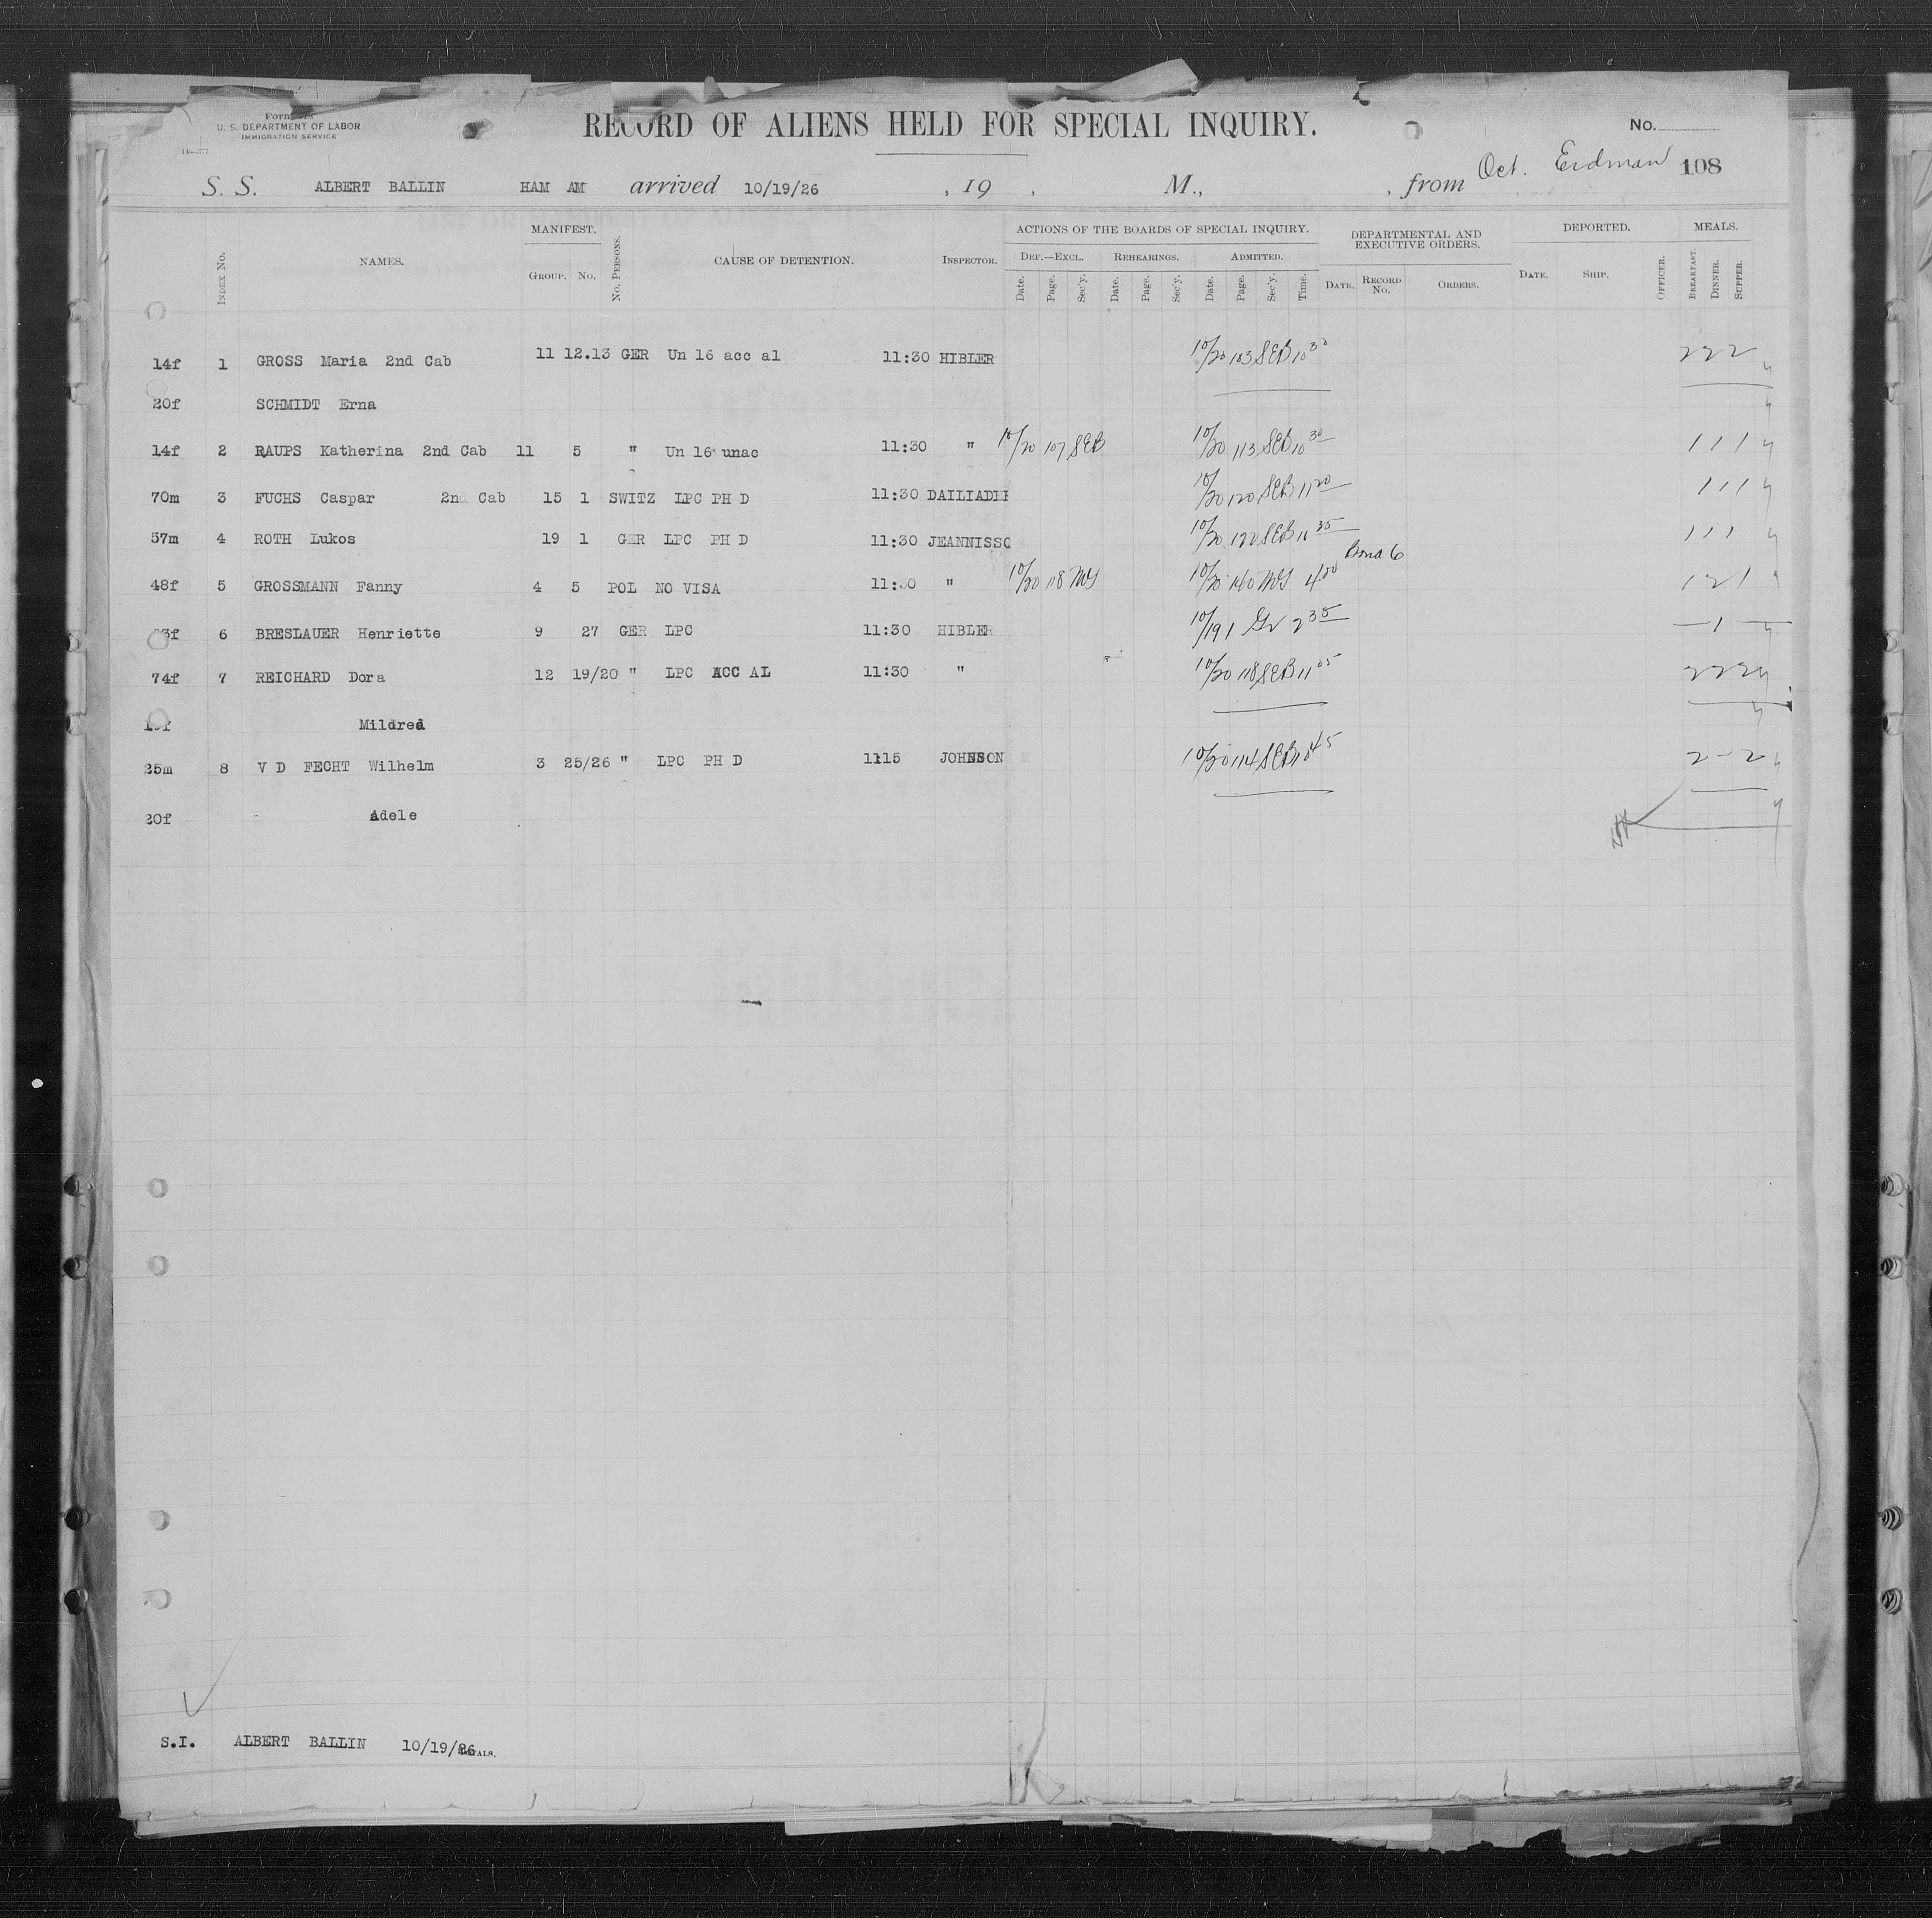 U. S. DEPARTMENT OF LABOR
IMMIGRATION SERVICE
RECORD OF ALIENS HELD FOR SPECIAL INQUIRY.
No.
Oct. Erdman 108
S. S. ALBERT BALLIN HAM AM arrived 10/19/26 , 19 , M., , from
MANIFEST. ACTIONS OF THE BOARDS OF SPECIAL INQUIRY. DEPARTMENTAL AND EXECUTIVE ORDERS. DEPORTED. MEALS.
Index No. NAMES. Group. No. No. Persons. CAUSE OF DETENTION. Inspector. Def.—Excl. Rehearings. Admitted.
Date. Page. Sec'y. Date. Page. Sec'y. Date. Page. Sec'y. Time. Date. Record No. Orders. Date. Ship. Officer. Breakfast. Dinner. Supper.
14f 1 GROSS Maria 2nd Cab 11 12.13 GER Un 16 acc al 11:30 HIBLER 10/20 103 SEB 10 30 2 2 2
20f SCHMIDT Erna
14f 2 RAUPS Katherina 2nd Cab 11 5 " Un 16 unac 11:30 " 10/20 107 SEB 10/20 113 SEB 10 30 1 1 1
70m 3 FUCHS Caspar 2nd Cab 15 1 SWITZ LPC PH D 11:30 10/20 120 SEB 11 20 1 1 1
57m 4 ROTH Lukos 19 1 GER LPC PH D 11:30 JEANNISSO 10/20 122 SEB 11 35 1 1 1
48f 5 GROSSMANN Fanny 4 5 POL NO VISA 11:30 " 10/20 118 10/20 160 4 00 1 2 1
6 BRESLAUER Henriette 9 27 GER LPC 11:30 HIBLER 10/19 1 2 35 — 1 —
74f 7 REICHARD Dora 12 19/20 " LPC ACC AL 11:30 " 10/20 118 SEB 11 05 2 2 2
Mildred
25m 8 V D FECHT Wilhelm 3 25/26 " LPC PH D 11:15 JOHNSON 10/20 114 SEB 10 45 2 - 2
20f Adele
S.I. ALBERT BALLIN 10/19/26